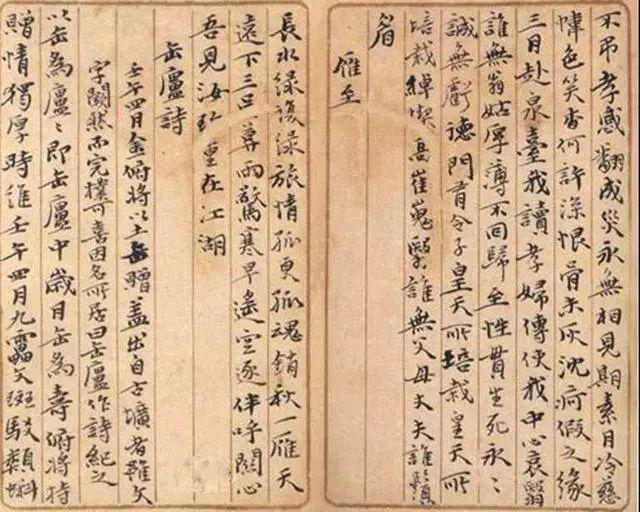 不吊孝感翻成災永無相見期素月冷慈
幃色笑杳何許深恨骨未灰沈疴假之緣
三月赴泉臺我讀孝婦傳使我中心哀翳
誰無翁姑厚薄不回歸至性貫生死永〻
誠無虧德門有令子皇天所培栽皇天所
培栽綽楔高崔嵬翳誰無父母丈夫誰鬚
眉
雁至
長水綠復綠旅情孤更孤魂銷秋一雁天
遠下三吳葦雨驚寒早遙空逐伴呼關心
吾見汝珍重在江湖
缶廬詩
壬午四月金俯將以土缶贈蓋出自古壙者雖文
字闕然不完樸可喜因名所居曰缶廬作詩紀之
以缶為廬〻即缶廬中歲月缶為壽俯將持
贈情獨厚時維壬午四月九靁文斑駁類蝌